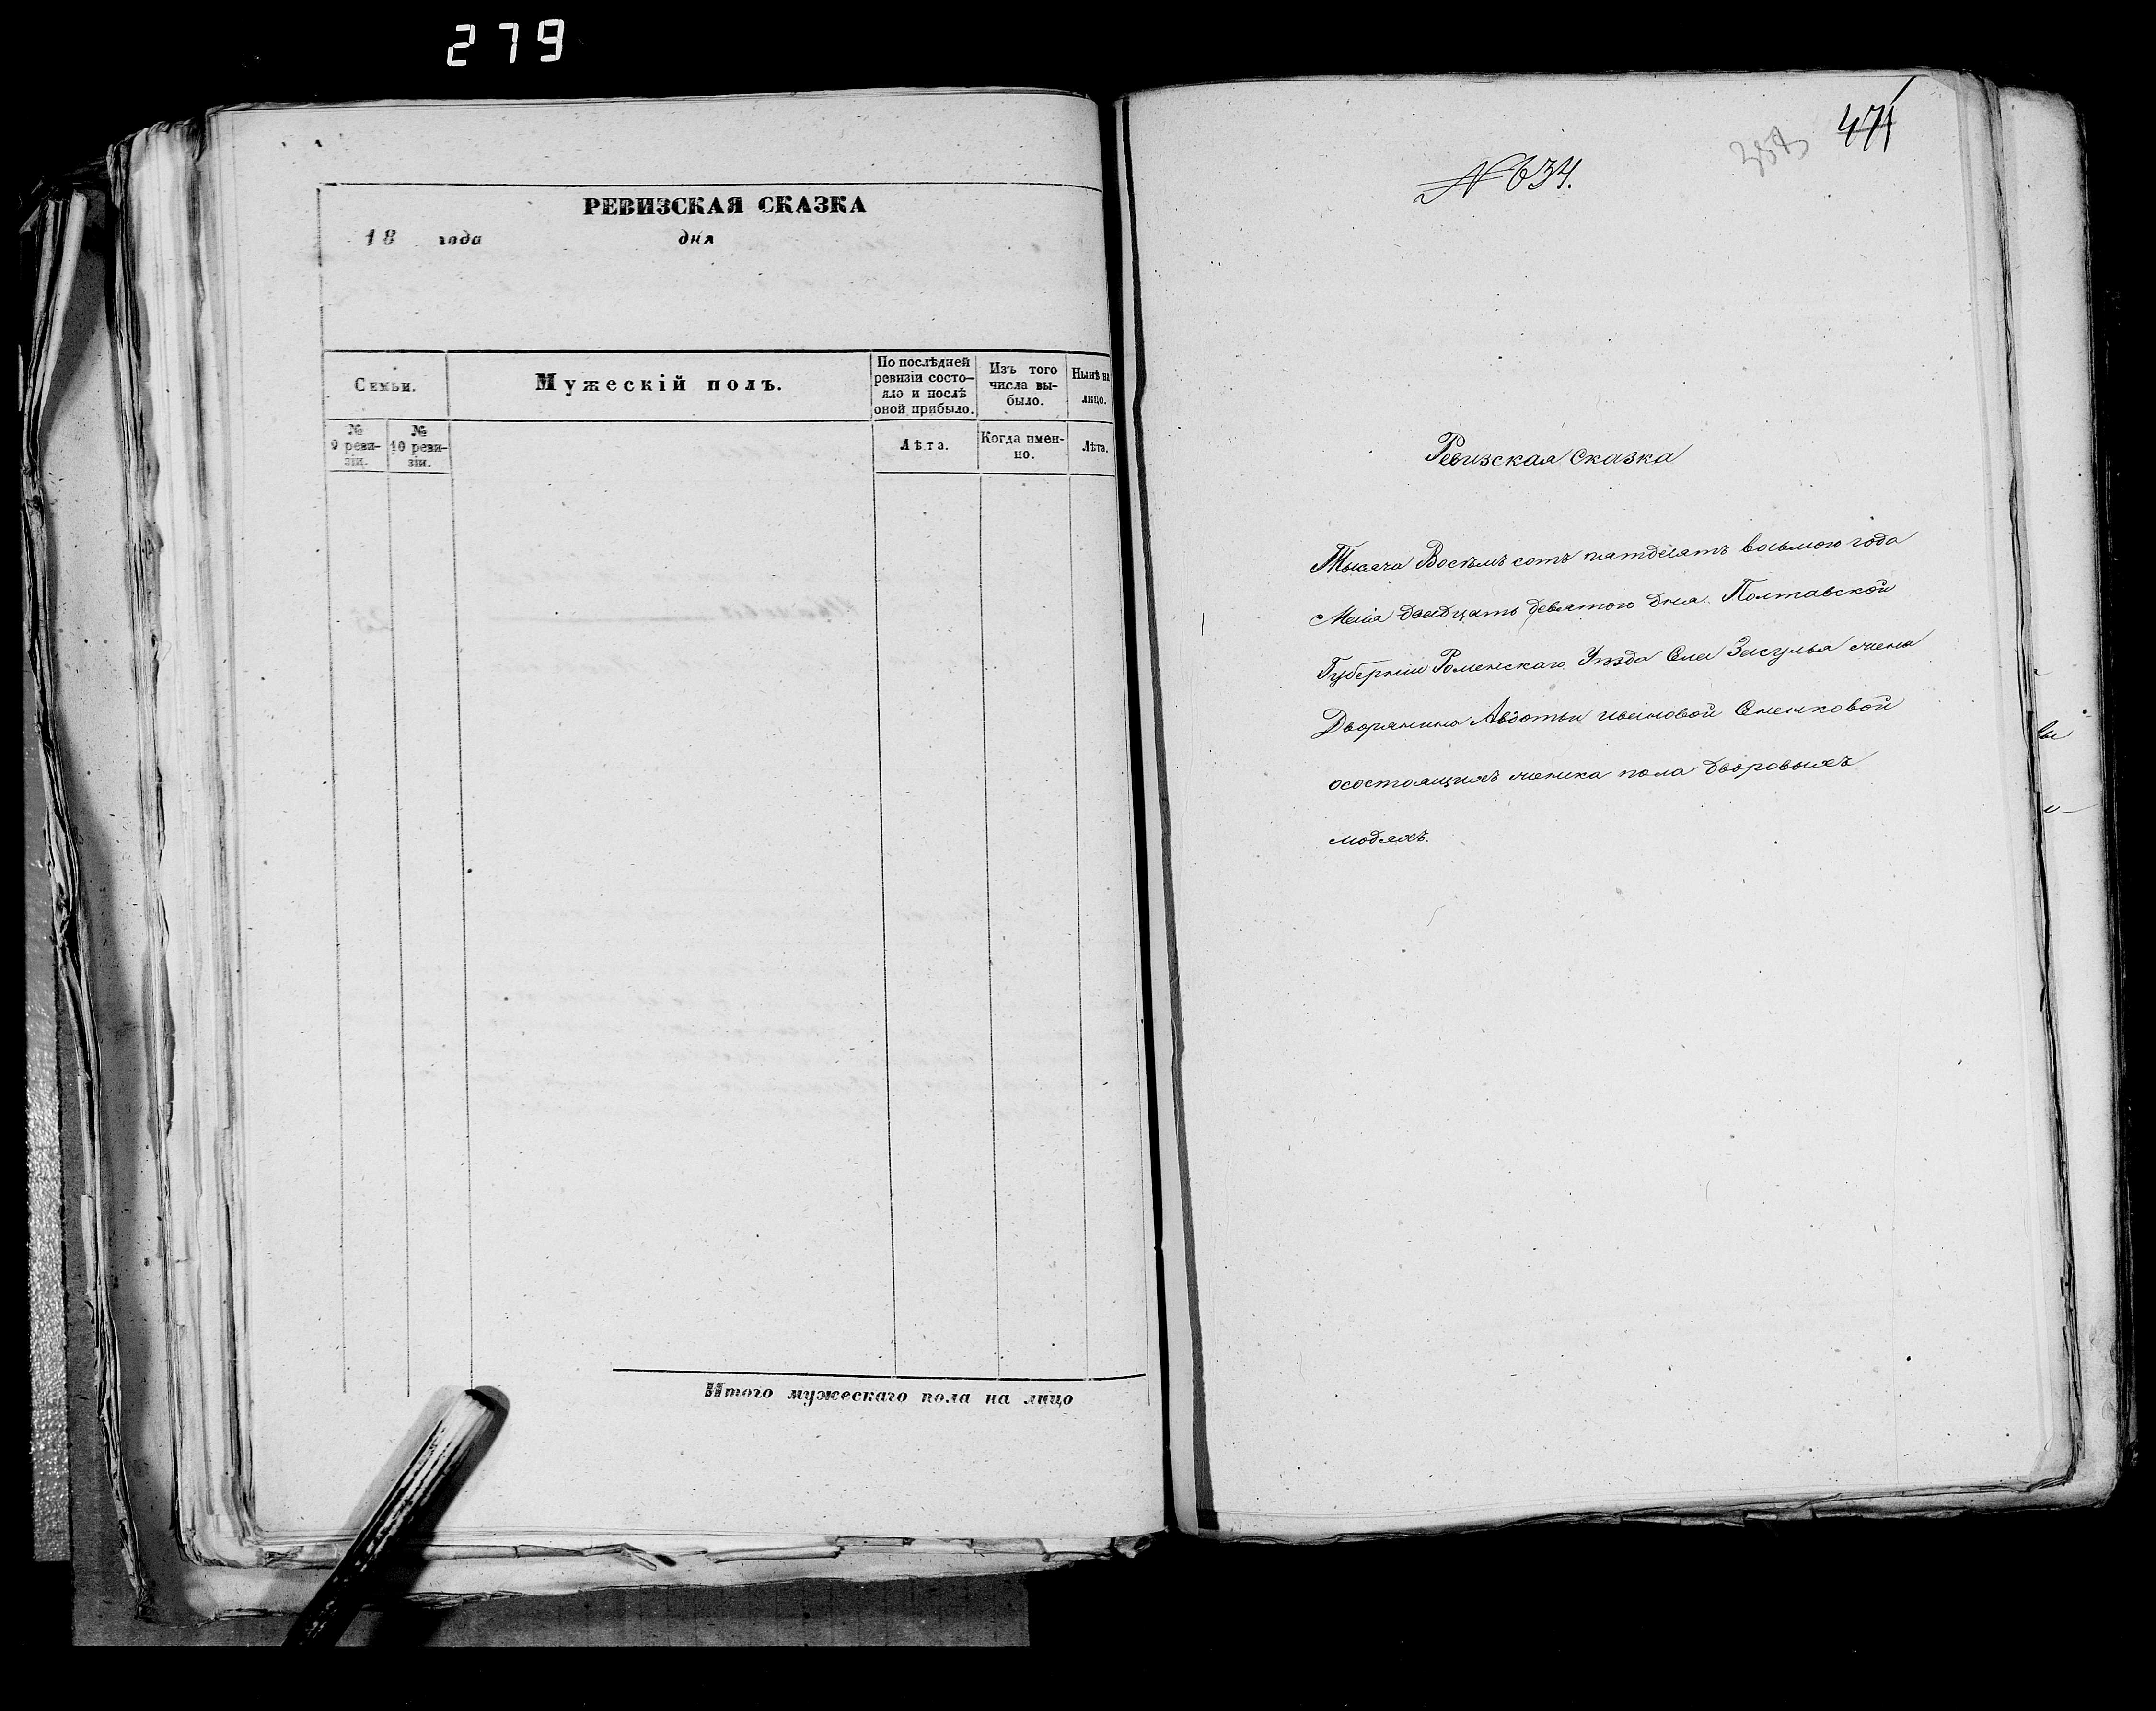 279
РЕВИЗСКАЯ СКАЗКА
18 года дня
Семьи.
Мужескій полъ.
По послѣдней ревизіи состо-
яло и послѣ
оной прибыло.
Изъ того
числа вы-
было.
Нынѣ на
лицо.
№
9 реви-
зіи.
№
10 реви-
зіи.
Лѣта.
Когда имен-
но.
Лѣта.
Итого мужескаго пола на лицо
471
№ 634.
Ревизская Сказка
Тысяча Восѣмъ сотъ пятдесятъ восьмого года
двадцать девятого дня Полтавской
Губерніи Роменскаго Уѣзда Села Засулья жены
Дворянина Авдотьи ивановой
осостоящихъ женска пола дворовыхъ
людяхъ.